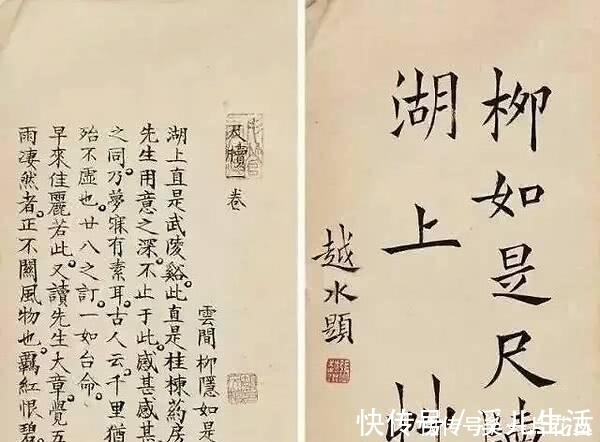 柳如是尺牘
湖上艸
越水題
尺牘一卷
雲間柳隱如是
湖上直是武陵谿。此直是桂棟药房
先生用意之深。不止于此。感甚感甚
之同乃夢寐有素耳古人云千里猶
殆不虛也。廿八之訂。一如台命。
早來佳麗若此。又讀先生大章覺五
雨淒然者。正不關風物也。羈紅恨碧
快传号/ 生活